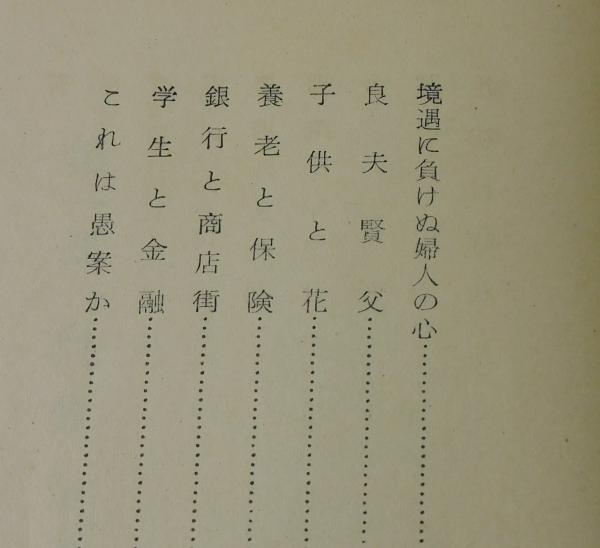 境遇に負けぬ婦人の心…………
良夫賢父…………
子供と花…………
養老と保険…………
銀行と商店街…………
学生と金融…………
これは愚案か…………